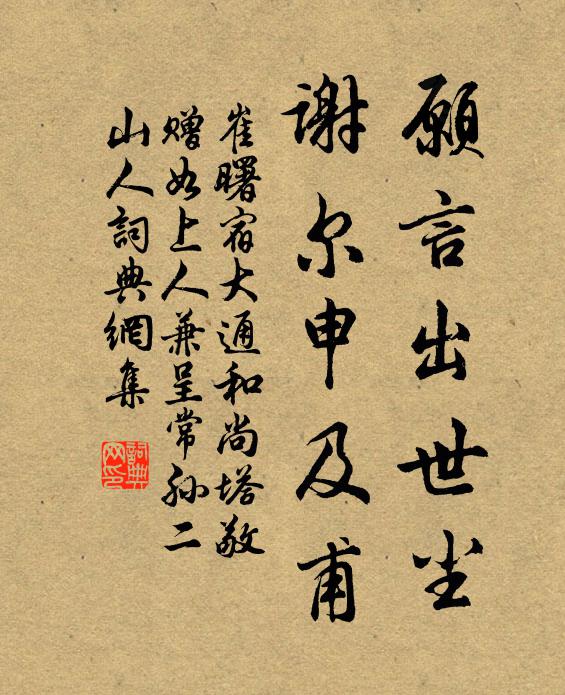 願言出世尘
謝尔申及甫
崔曙宿大通和尚塔敬
贈如上人兼呈常孙二
山人詞典網集
詞典网印